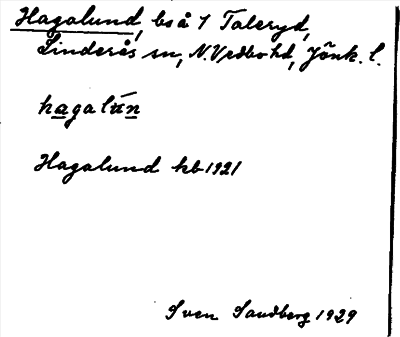 Hagalund, bs å 1 Taleryd,
Linderås sn, N. Vedbo hd, Jönk. l.
hagalún
Hagalund kb 1921
Sven Sandberg 1929